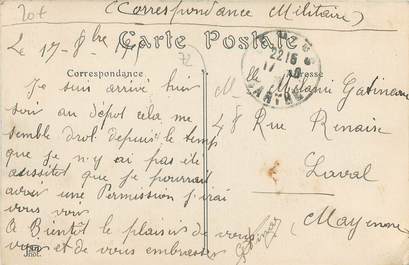 (Correspondance Militaire)
Le 17-8bre
Carte Postale
Correspondance
Adresse
22 15
SARTHE
Je suis arrivé hier
soir au dépot cela me
semble drol depuis le temps
que je n'y ai pas été
aussitot que je pourrai
avoir une Permission j'irai
vous voir
A Bientôt le plaisir de vous
voir et de vous embrasser
Melle Mélanie Gatineau
48 Rue Renaise
Laval
(Mayenne)
phot.